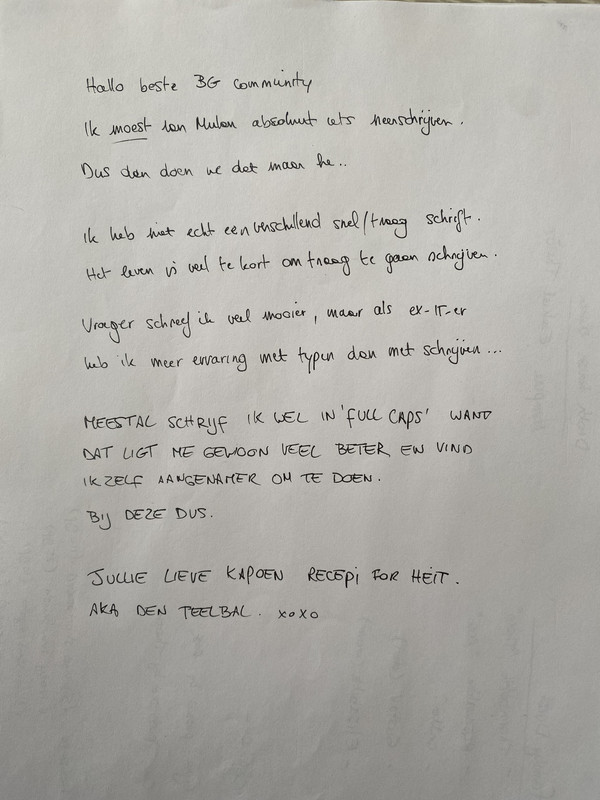 Hallo beste BG community
Ik moest van Mulan absoluut iets neerschrijven.
Dus dan doen we dat maar he..
Ik heb niet echt een verschillend snel/traag schrift.
Het leven is veel te kort om traag te gaan schrijven.
Vroeger schreef ik veel mooier, maar als ex-IT-er
heb ik meer ervaring met typen dan met schrijven...
MEESTAL SCHRIJF IK WEL IN 'FULL CAPS' WANT
DAT LIGT ME GEWOON VEEL BETER EN VIND
IK ZELF AANGENAMER OM TE DOEN.
Bij DEZE DUS.
JULLIE LIEVE KAPOEN RECEPi FOR HEIT.
AKA DEN TEELBAL. xoxo